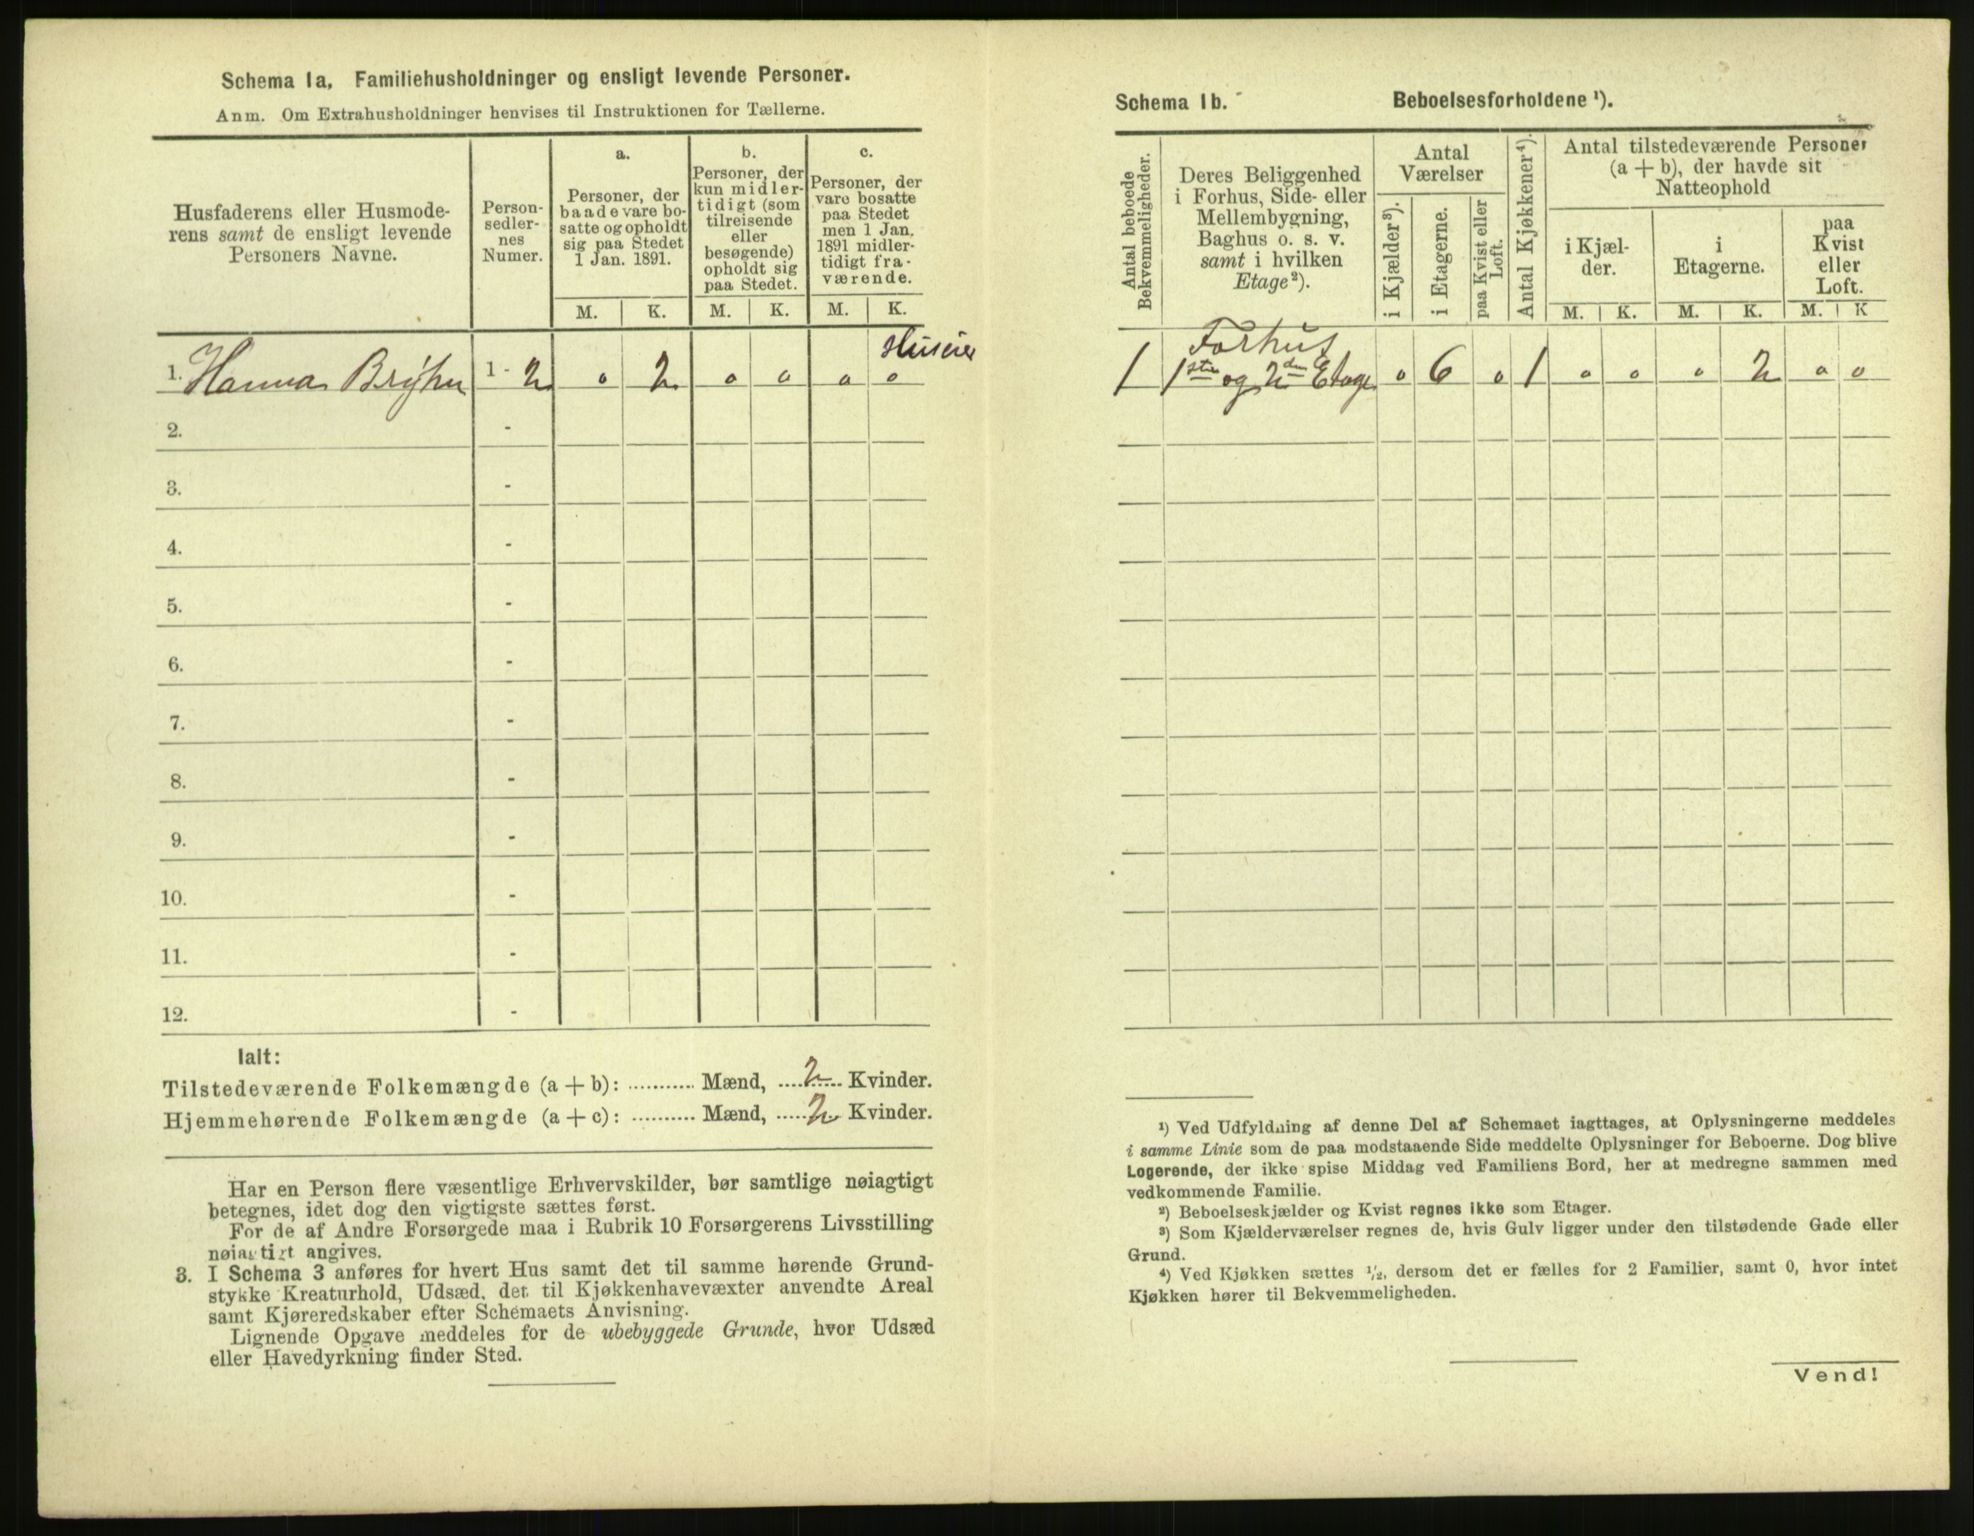 Schema 1a. Familiehusholdninger og ensligt levende Personer.
Anm. Om Extrahusholdninger henvises til Instruktionen for Tællerne.
Husfaderens eller Husmode-
rens samt de ensligt levende
Personers Navne.
Person-
sedler-
nes
Numer.
a.
Personer, der
baade vare bo-
satte og opholdt
sig paa Stedet
1 Jan. 1891.
b.
Personer, der
kun midler-
tidigt (som
tilreisende
eller
besøgende)
opholdt sig
paa Stedet.
c.
Personer, der
vare bosatte
paa Stedet
men 1 Jan.
1891 midler-
tidigt fra-
værende.
M. K. M. K. M. K.
Huseier
1. Hanna Brÿhn 1 - 2 0 2 0 0 0 0
2. -
3. -
4. -
5. -
6. -
7. -
8. -
9. -
10. -
11. -
12. -
Ialt:
Tilstedeværende Folkemængde (a + b): ........... Mænd, 2 Kvinder.
Hjemmehørende Folkemængde (a + c): .......... Mænd, 2 Kvinder.
Har en Person flere væsentlige Erhvervskilder, bør samtlige nøiagtigt
betegnes, idet dog den vigtigste sættes først.
For de af Andre Forsørgede maa i Rubrik 10 Forsørgerens Livsstilling
nøiagtigt angives.
3. I Schema 3 anføres for hvert Hus samt det til samme hørende Grund-
stykke Kreaturhold, Udsæd, det til Kjøkkenhavevæxter anvendte Areal
samt Kjøreredskaber efter Schemaets Anvisning.
Lignende Opgave meddeles for de ubebyggede Grunde, hvor Udsæd
eller Havedyrkning finder Sted.
Schema 1b. Beboelsesforholdene ¹).
Antal beboede
Bekvemmeligheder.
Deres Beliggenhed
i Forhus, Side- eller
Mellembygning,
Baghus o. s. v.
samt i hvilken
Etage²).
Antal
Værelser
i Kjælder³).
i Etagerne.
paa Kvist eller
Loft.
Antal Kjøkkener⁴).
Antal tilstedeværende Personer
(a + b), der havde sit
Natteophold
i Kjæl-
der.
i
Etagerne.
paa
Kvist
eller
Loft.
M. K. M. K. M. K
Forhus
1 1ste og 2den Etage 0 6 0 1 0 0 0 2 0 0
¹) Ved Udfyldning af denne Del af Schemaet iagttages, at Oplysningerne meddeles
i samme Linie som de paa modstaaende Side meddelte Oplysninger for Beboerne. Dog blive
Logerende, der ikke spise Middag ved Familiens Bord, her at medregne sammen med
vedkommende Familie.
²) Beboelseskjælder og Kvist regnes ikke som Etager.
³) Som Kjælderværelser regnes de, hvis Gulv ligger under den tilstødende Gade eller
Grund.
⁴) Ved Kjøkken sættes ½, dersom det er fælles for 2 Familier, samt 0, hvor intet
Kjøkken hører til Bekvemmeligheden.
Vend!